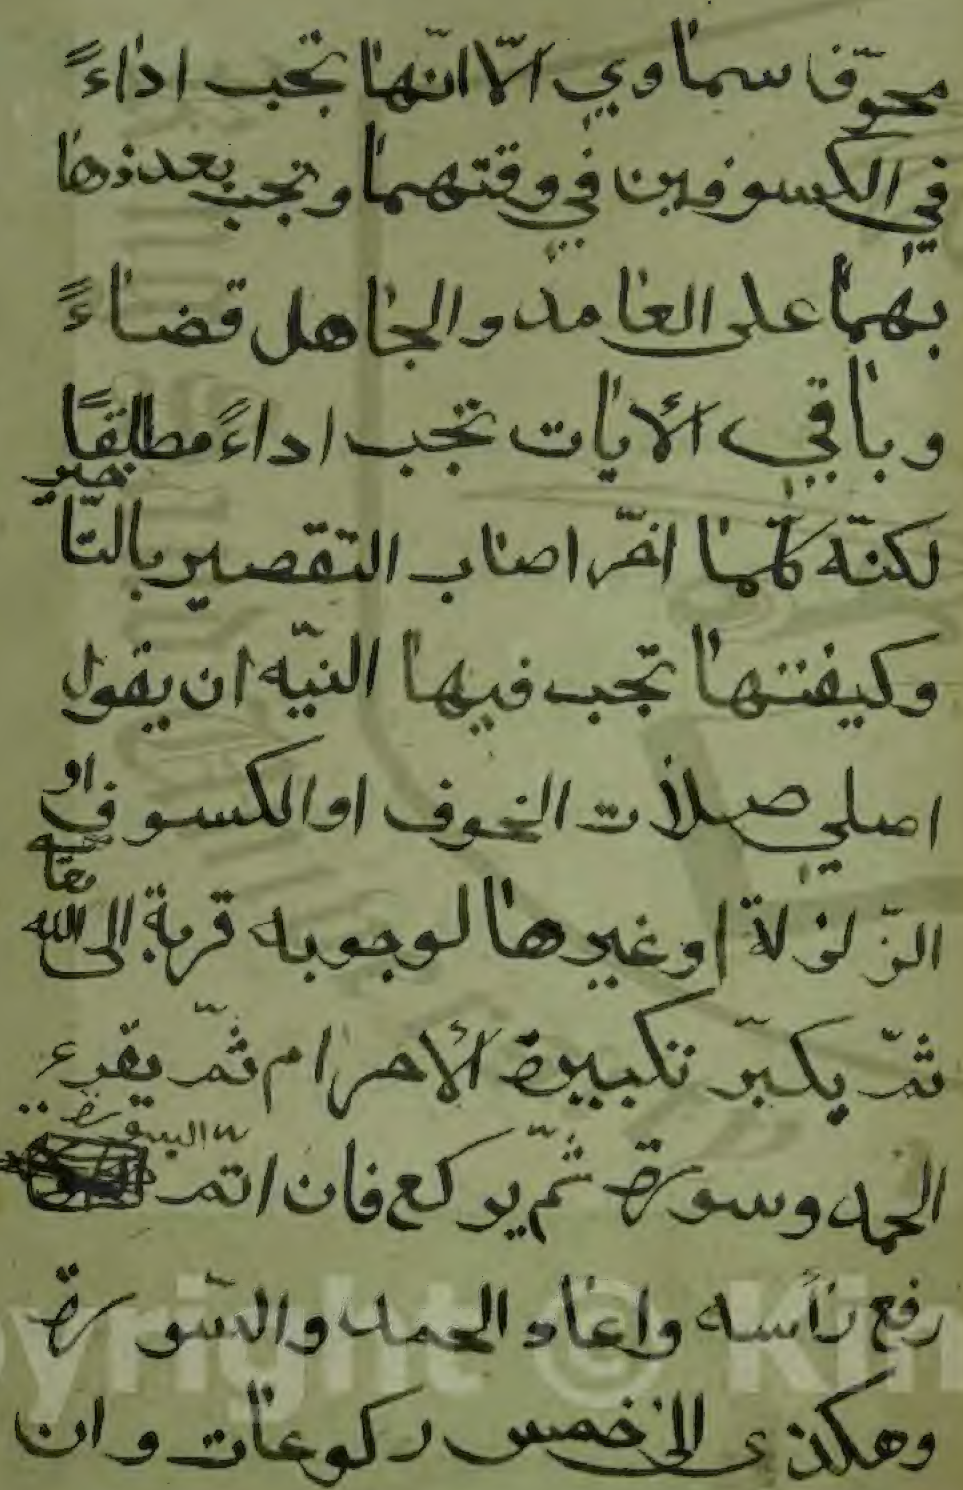 مخوّف سماوي الّا انّها تجب اداءً
في الكسوفين في وقتهما وتجب بعد
بهما على العامد والجاهل قضاءً
وباقي الأيات تجب اداءً مطلقًا
لكنّه كلّما اخّر اصاب التقصير بالتّاخير
وكيفتها تجب فيها النيّه ان يقول
اصلي صلات الخوف او الكسوف او
الزّلزلة او غيرها لوجوبه قربة الى الله تعا
ثمّ يكبّر تكبيرة الأحرام ثمّ يقرء
الحمد وسورة ثمّ يركع فان اتمّ السورة
رفع رأسه واعاد الحمد والسّورة
وهكذى الى خمس ركوعات وان